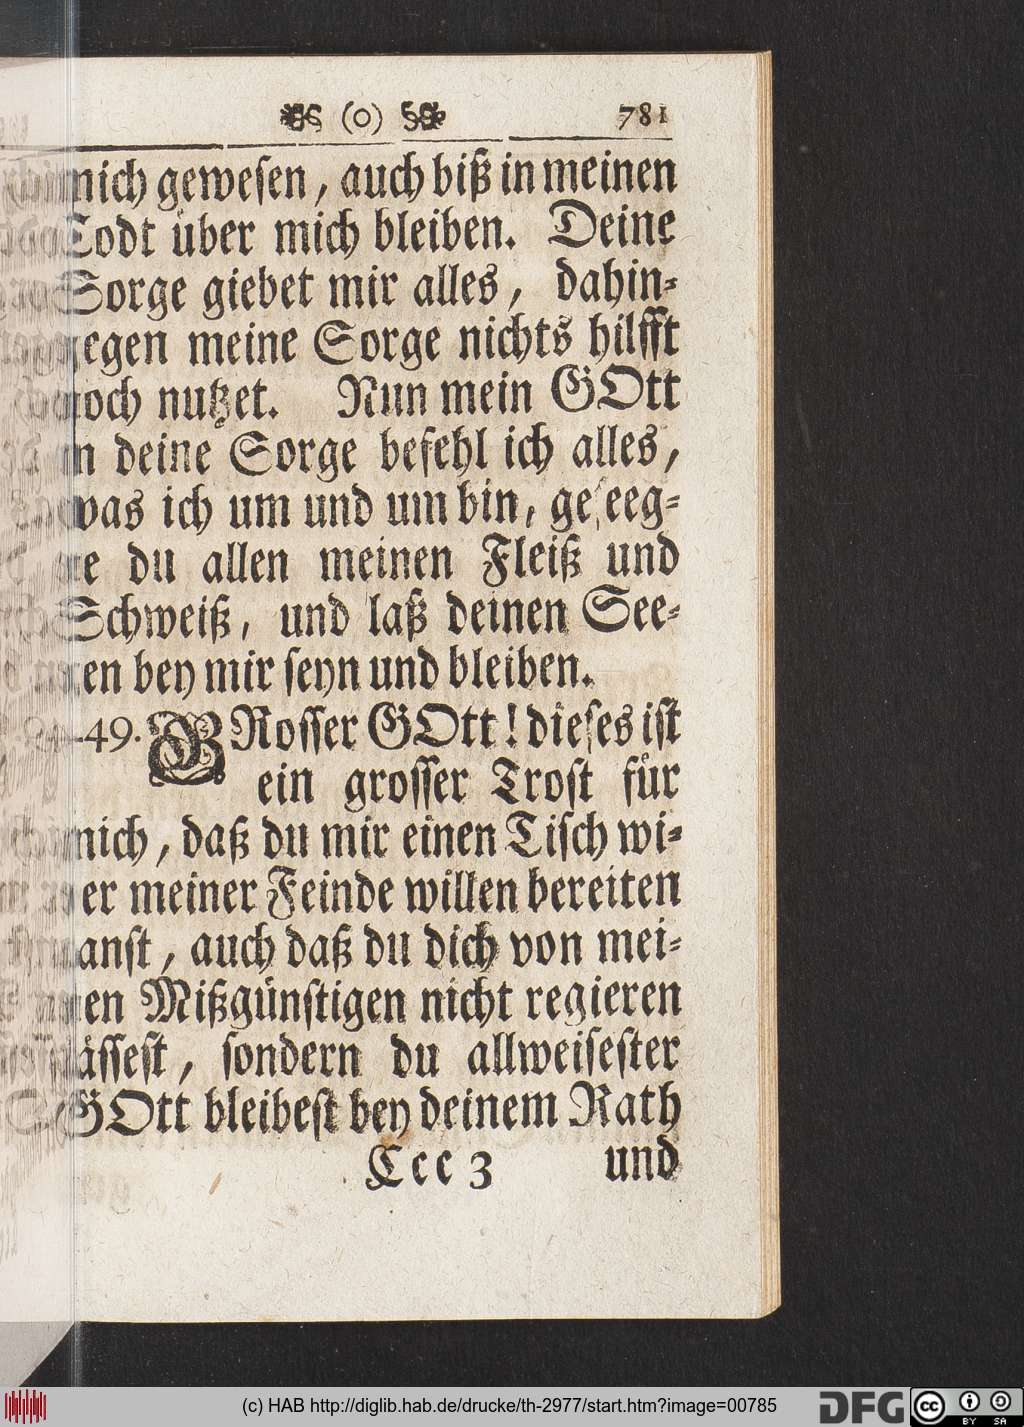 (o) 781
mich gewesen, auch biß in meinen
Todt über mich bleiben. Deine
Sorge giebet mir alles, dahin-
gegen meine Sorge nichts hilfft
noch nutzet. Nun mein GOtt
in deine Sorge befehl ich alles,
was ich um und um bin, geseeg-
ne du allen meinen Fleiß und
Schweiß, und laß deinen See-
gen bey mir seyn und bleiben.
49. GRosser GOtt! dieses ist
ein grosser Trost für
mich, daß du mir einen Tisch wi-
der meiner Feinde willen bereiten
kanst, auch daß du dich von mei-
nen Mißgünstigen nicht regieren
lässest, sondern du allweisester
GOtt bleibest bey deinem Rath
Ccc 3 und
(c) HAB http://diglib.hab.de/drucke/th-2977/start.htm?image=00785
DFG
cc BY SA